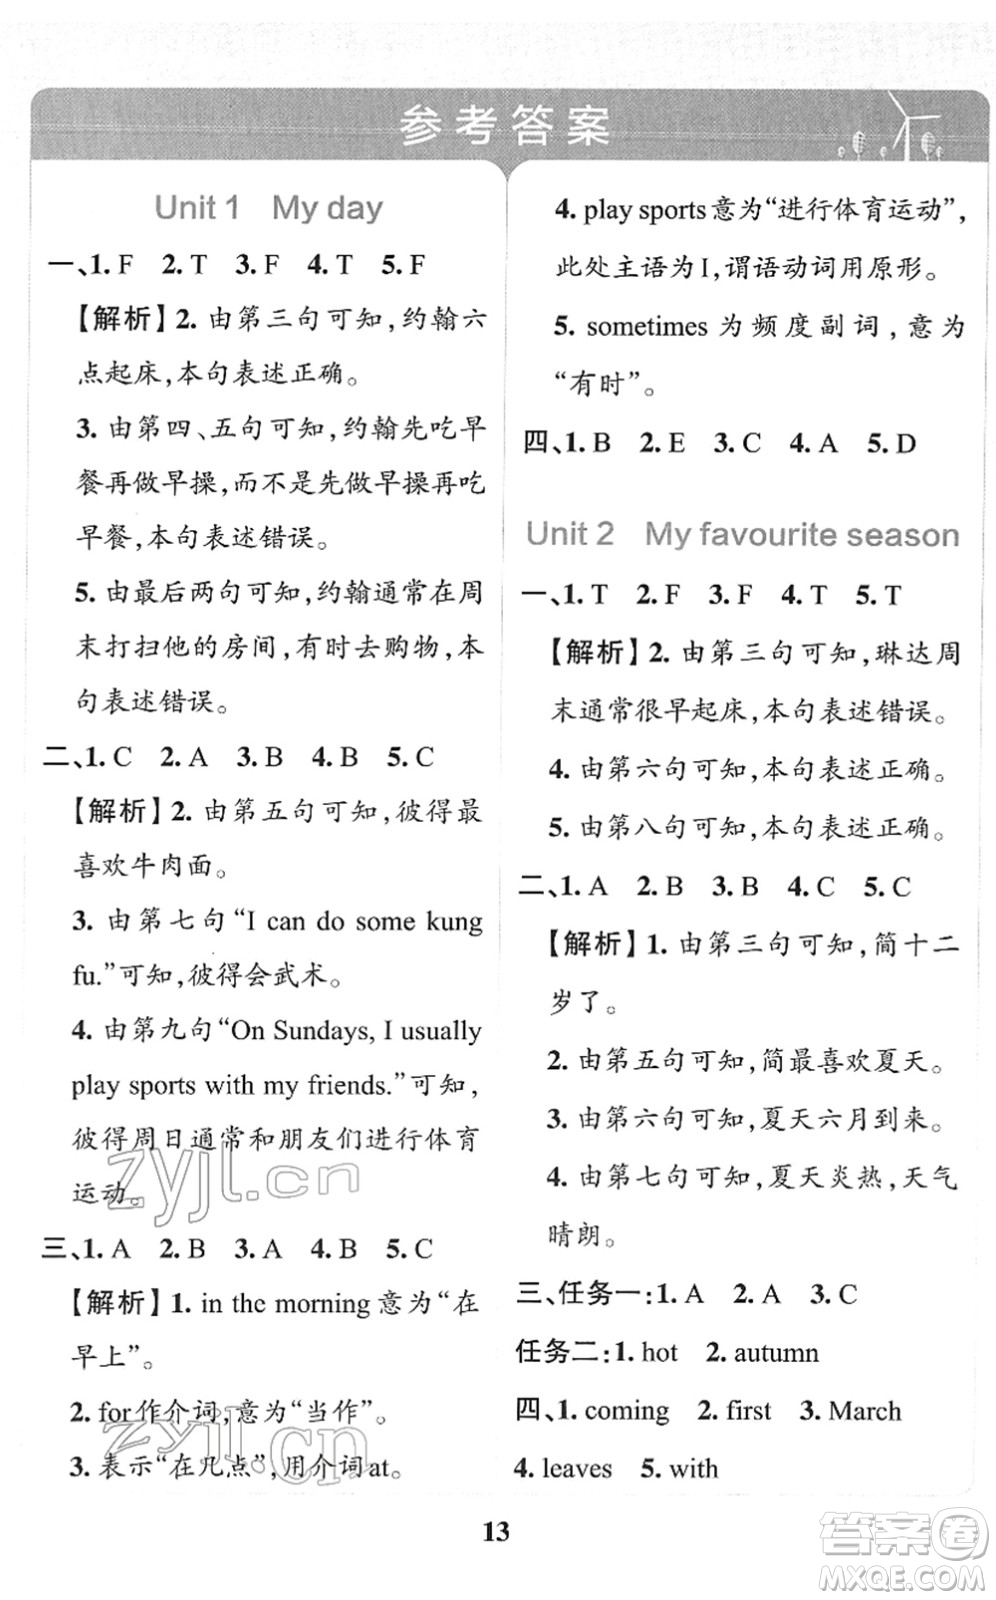 参考答案
Unit 1 My day
一、1. F 2. T 3. F 4. T 5. F
【解析】2. 由第三句可知,约翰六
点起床,本句表述正确。
3. 由第四、五句可知,约翰先吃早
餐再做早操,而不是先做早操再吃
早餐,本句表述错误。
5. 由最后两句可知,约翰通常在周
末打扫他的房间,有时去购物,本
句表述错误。
二、1. C 2. A 3. B 4. B 5. C
【解析】2. 由第五句可知,彼得最
喜欢牛肉面。
3. 由第七句“I can do some kung
fu.”可知,彼得会武术。
4. 由第九句“On Sundays, I usually
play sports with my friends.”可知,
彼得周日通常和朋友们进行体育
运动。
三、1. A 2. B 3. A 4. B 5. C
【解析】1. in the morning意为“在
早上”。
2. for作介词,意为“当作”。
3. 表示“在几点”,用介词at。
4. play sports意为“进行体育运动”,
此处主语为I,谓语动词用原形。
5. sometimes 为频度副词,意为
“有时”。
四、1. B 2. E 3. C 4. A 5. D
Unit 2 My favourite season
一、1. T 2. F 3. F 4. T 5. T
【解析】2. 由第三句可知,琳达周
末通常很早起床,本句表述错误。
4. 由第六句可知,本句表述正确。
5. 由第八句可知,本句表述正确。
二、1. A 2. B 3. B 4. C 5. C
【解析】1. 由第三句可知,简十二
岁了。
2. 由第五句可知,简最喜欢夏天。
3. 由第六句可知,夏天六月到来。
4. 由第七句可知,夏天炎热,天气
晴朗。
三、任务一:1. A 2. A 3. C
任务二:1. hot 2. autumn
四、1. coming 2. first 3. March
4. leaves 5. with
13
zyjl.cn
zyjl.cn
答案卷
MXQE.COM